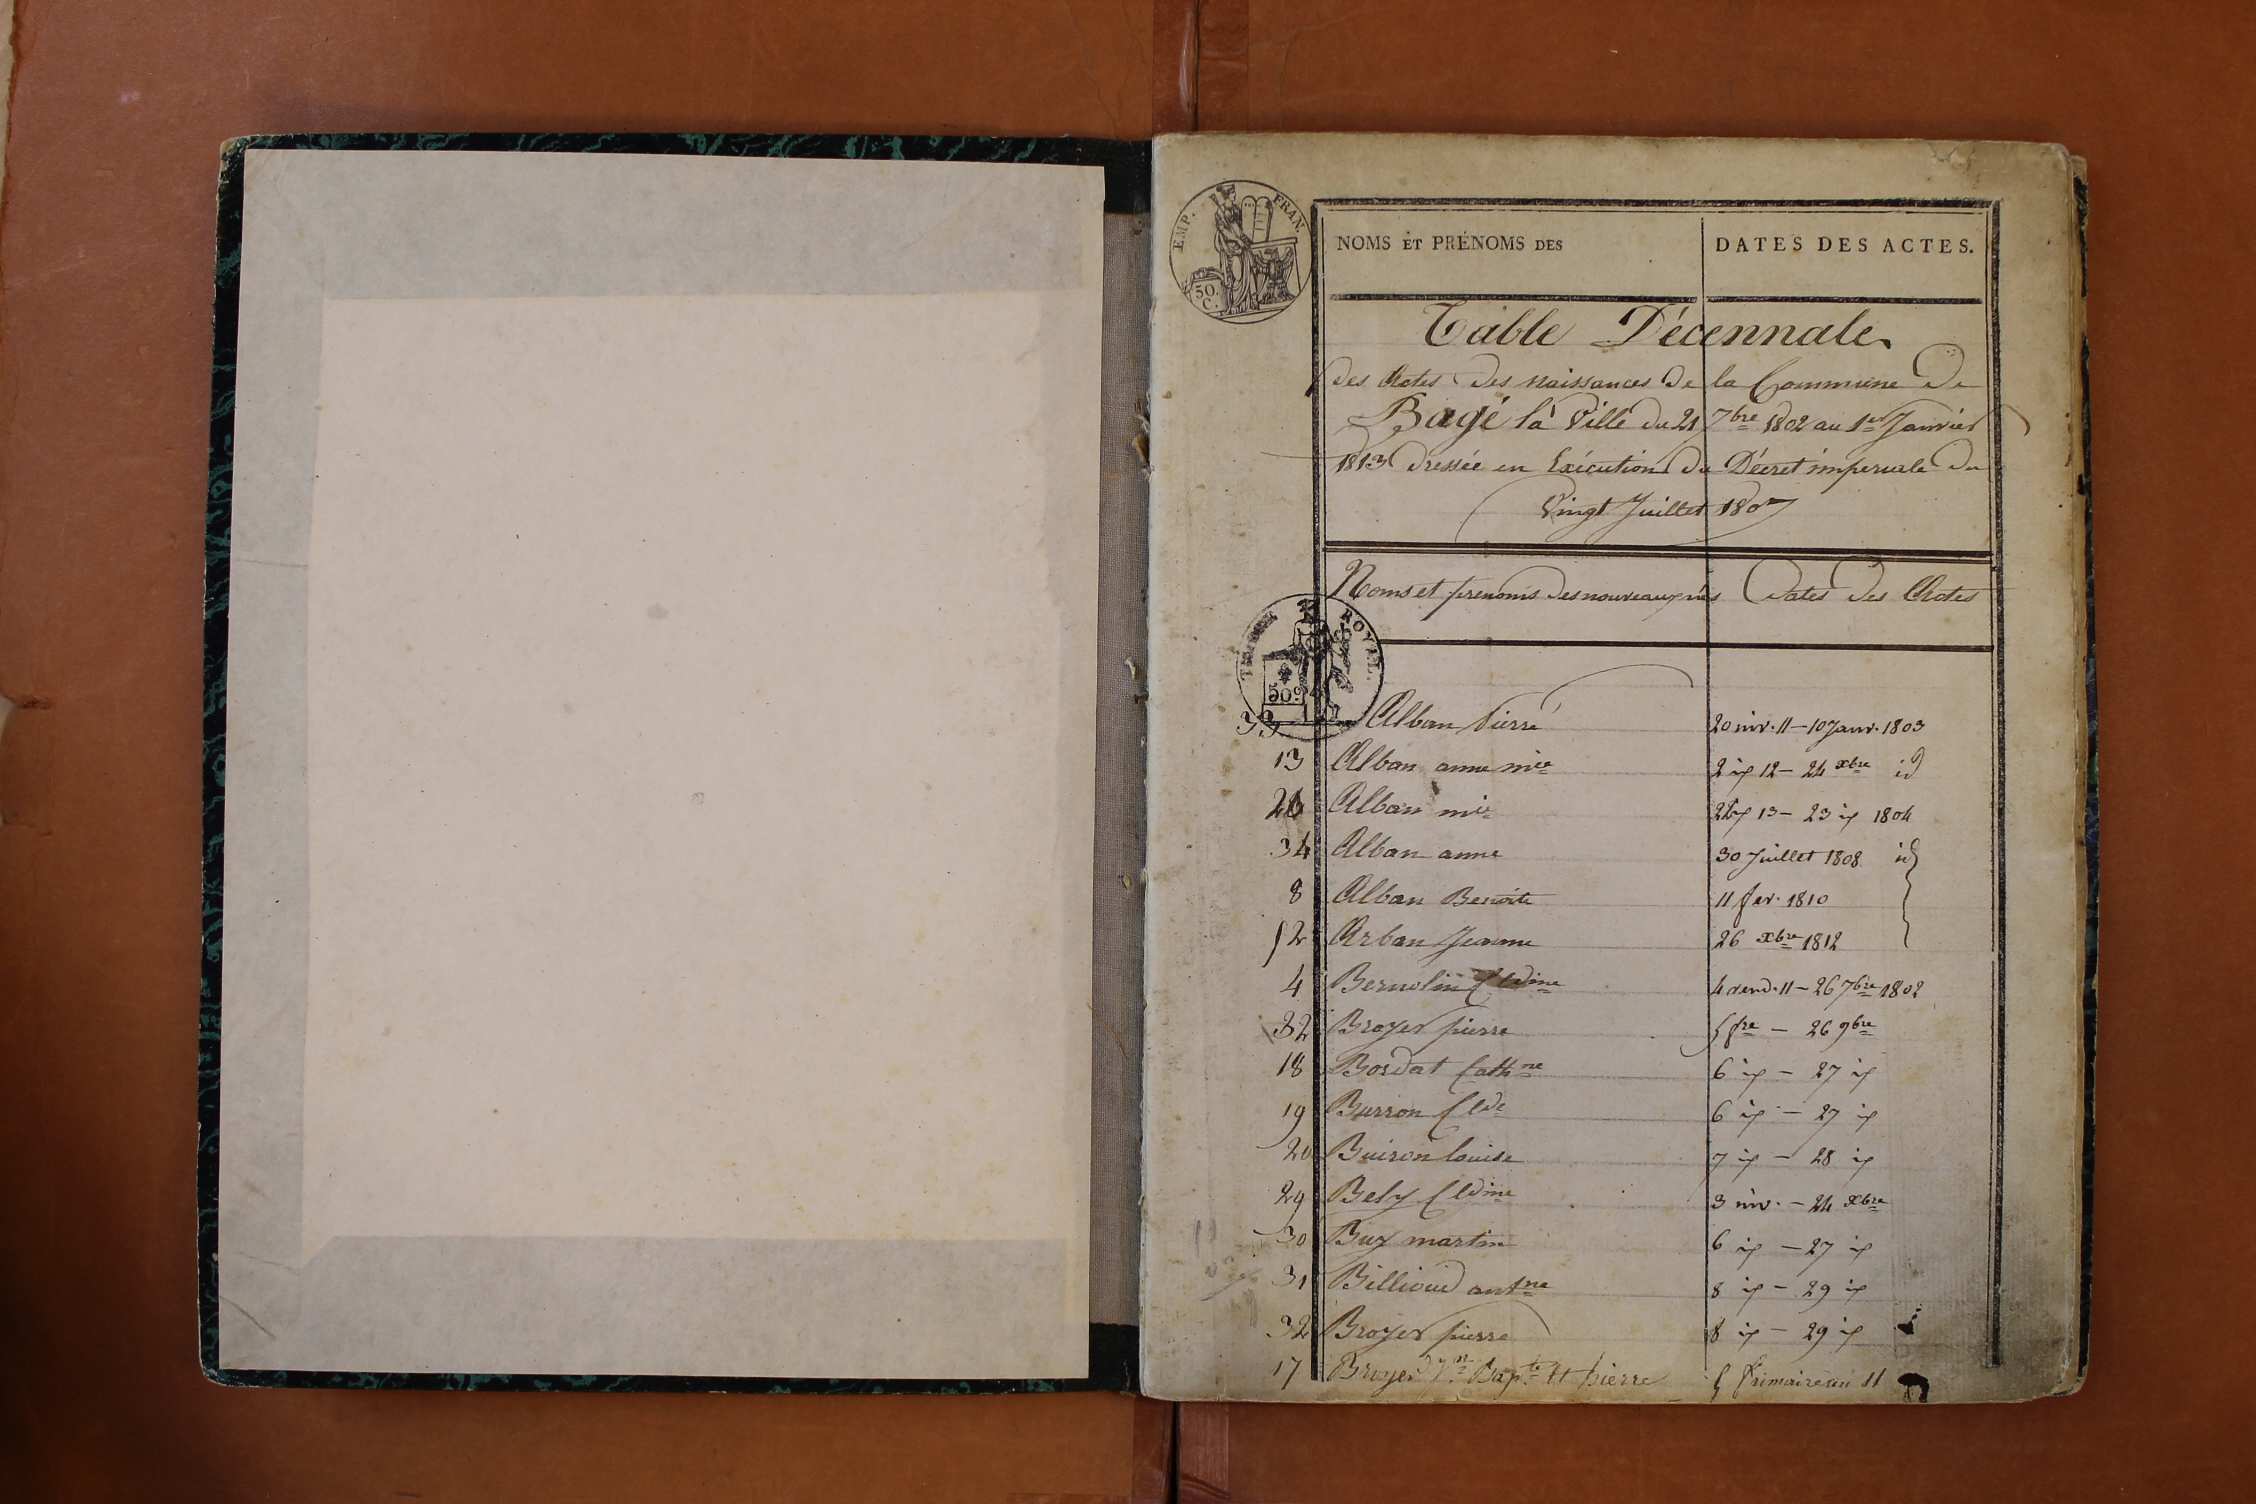 EMP. FRAN.
50. C.
NOMS ET PRÉNOMS DES DATES DES ACTES.
Table Décennale
des Actes des naissances de la Commune de
Bagé la Ville du 21 7bre 1802 au 1er Janvier
1813 dressée en Exécution du Décret imperiale du
Vingt Juillet 1807
Noms et prenoms des nouveaux nés Dates des Actes
TIMBRE ROYAL.
50 c
33 Alban Pierre 20 niv. 11 - 10 Janv. 1803
13 Alban anne mie 2 ip 12 - 24 xbre id
26 Alban mie ip 13 - 23 ip 1804
34 Alban anne 30 Juillet 1808 id
8 Alban Benoite 11 fev. 1810
52 Arban Jeanne 26 xbre 1812
4 Bernolin Cldine 4 vend. 11 - 26 7bre 1802
32 Broyer pierre 5 fre - 26 9bre
18 Bordat Cathne 6 ip - 27 ip
19 Burron Clde 6 ip - 27 ip
20 Buiron louise 7 ip - 28 ip
29 Bely Cldine 3 niv. - 24 xbre
30 Buy martin 6 ip - 27 ip
31 Billioud antne 8 ip - 29 ip
32 Broyer pierre 8 ip - 29 ip
17 Broyer Jn Bapte et pierre 5 frimaire an 11